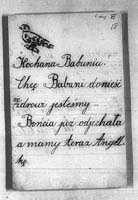 Kochana Babuniu.
Chcę Babuni donieść
że zdrowi jesteśmy
Bońcia już odjechała
a mamy teraz Angell
kę